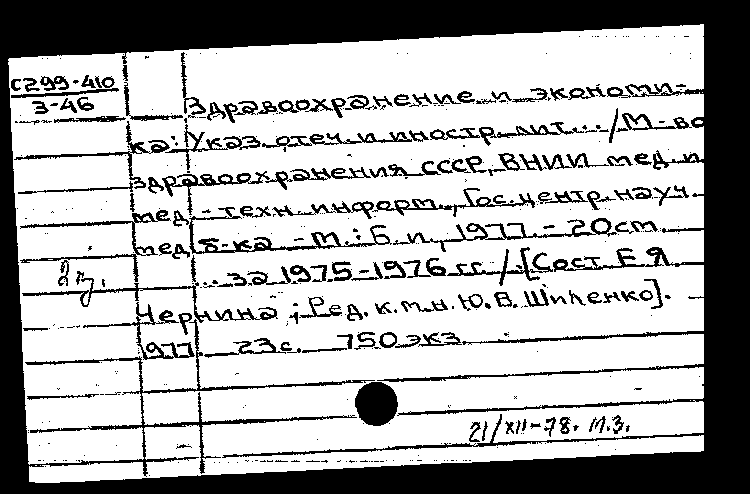 С299-410
З-46
Здравоохранение и экономи-
ка: Указ. отеч. и иностр. лит... / М-во
здравоохранения СССР, ВНИИ мед. и
мед.-техн. информ., Гос. центр. науч.
мед. б-ка. - М.: Б. и., 1977. - 20 см.
... за 1975-1976 гг. / [Сост. Е. Я.
Чернина ; Ред. к.м.н. Ю. В. Шиленко].
1977. 23 с. 750 экз.
21/XII-78. М.З.